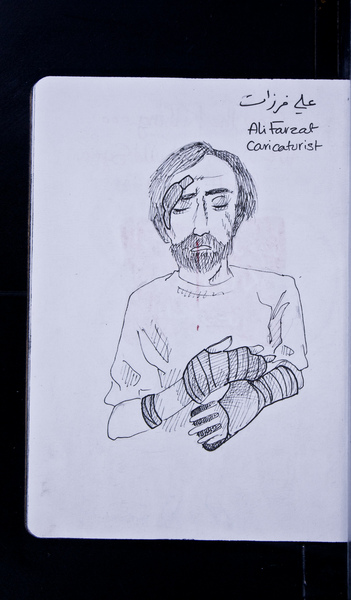 علي فرزات
Ali Farzat
Caricaturist